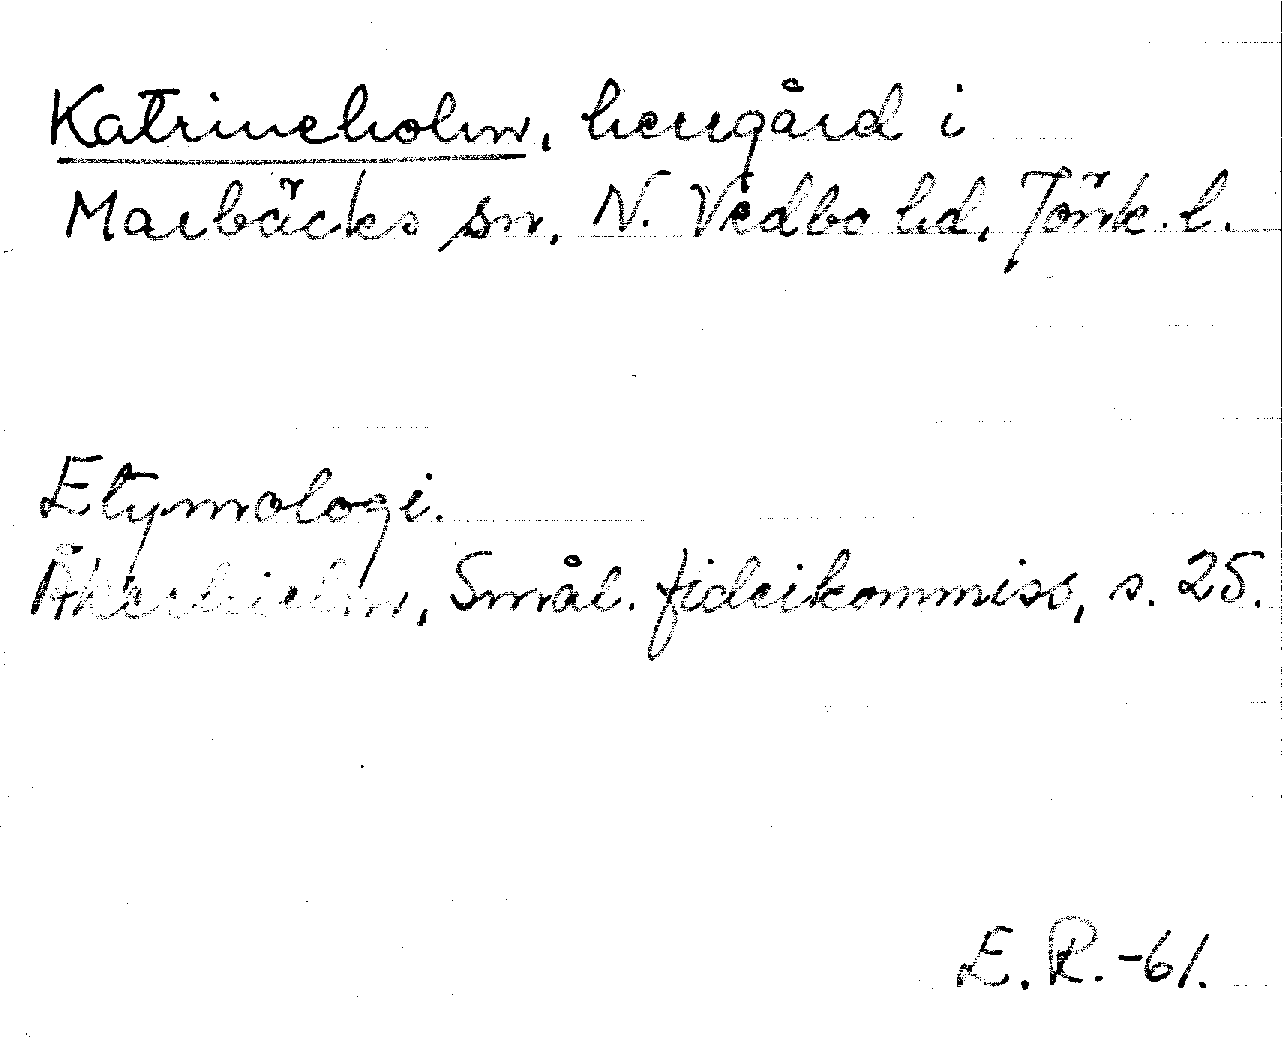 Katrineholm, herrgård i
Marbäcks sn, N. Vedbo hd, Jönk. l.
Etymologi.
Åkerhielm, Smål. fideikommiss, s. 25.
E. R. -61.